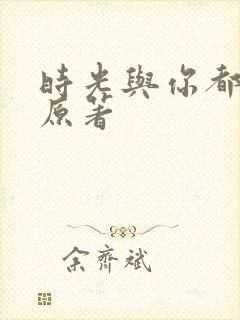 時光與你都
原著
余齊斌